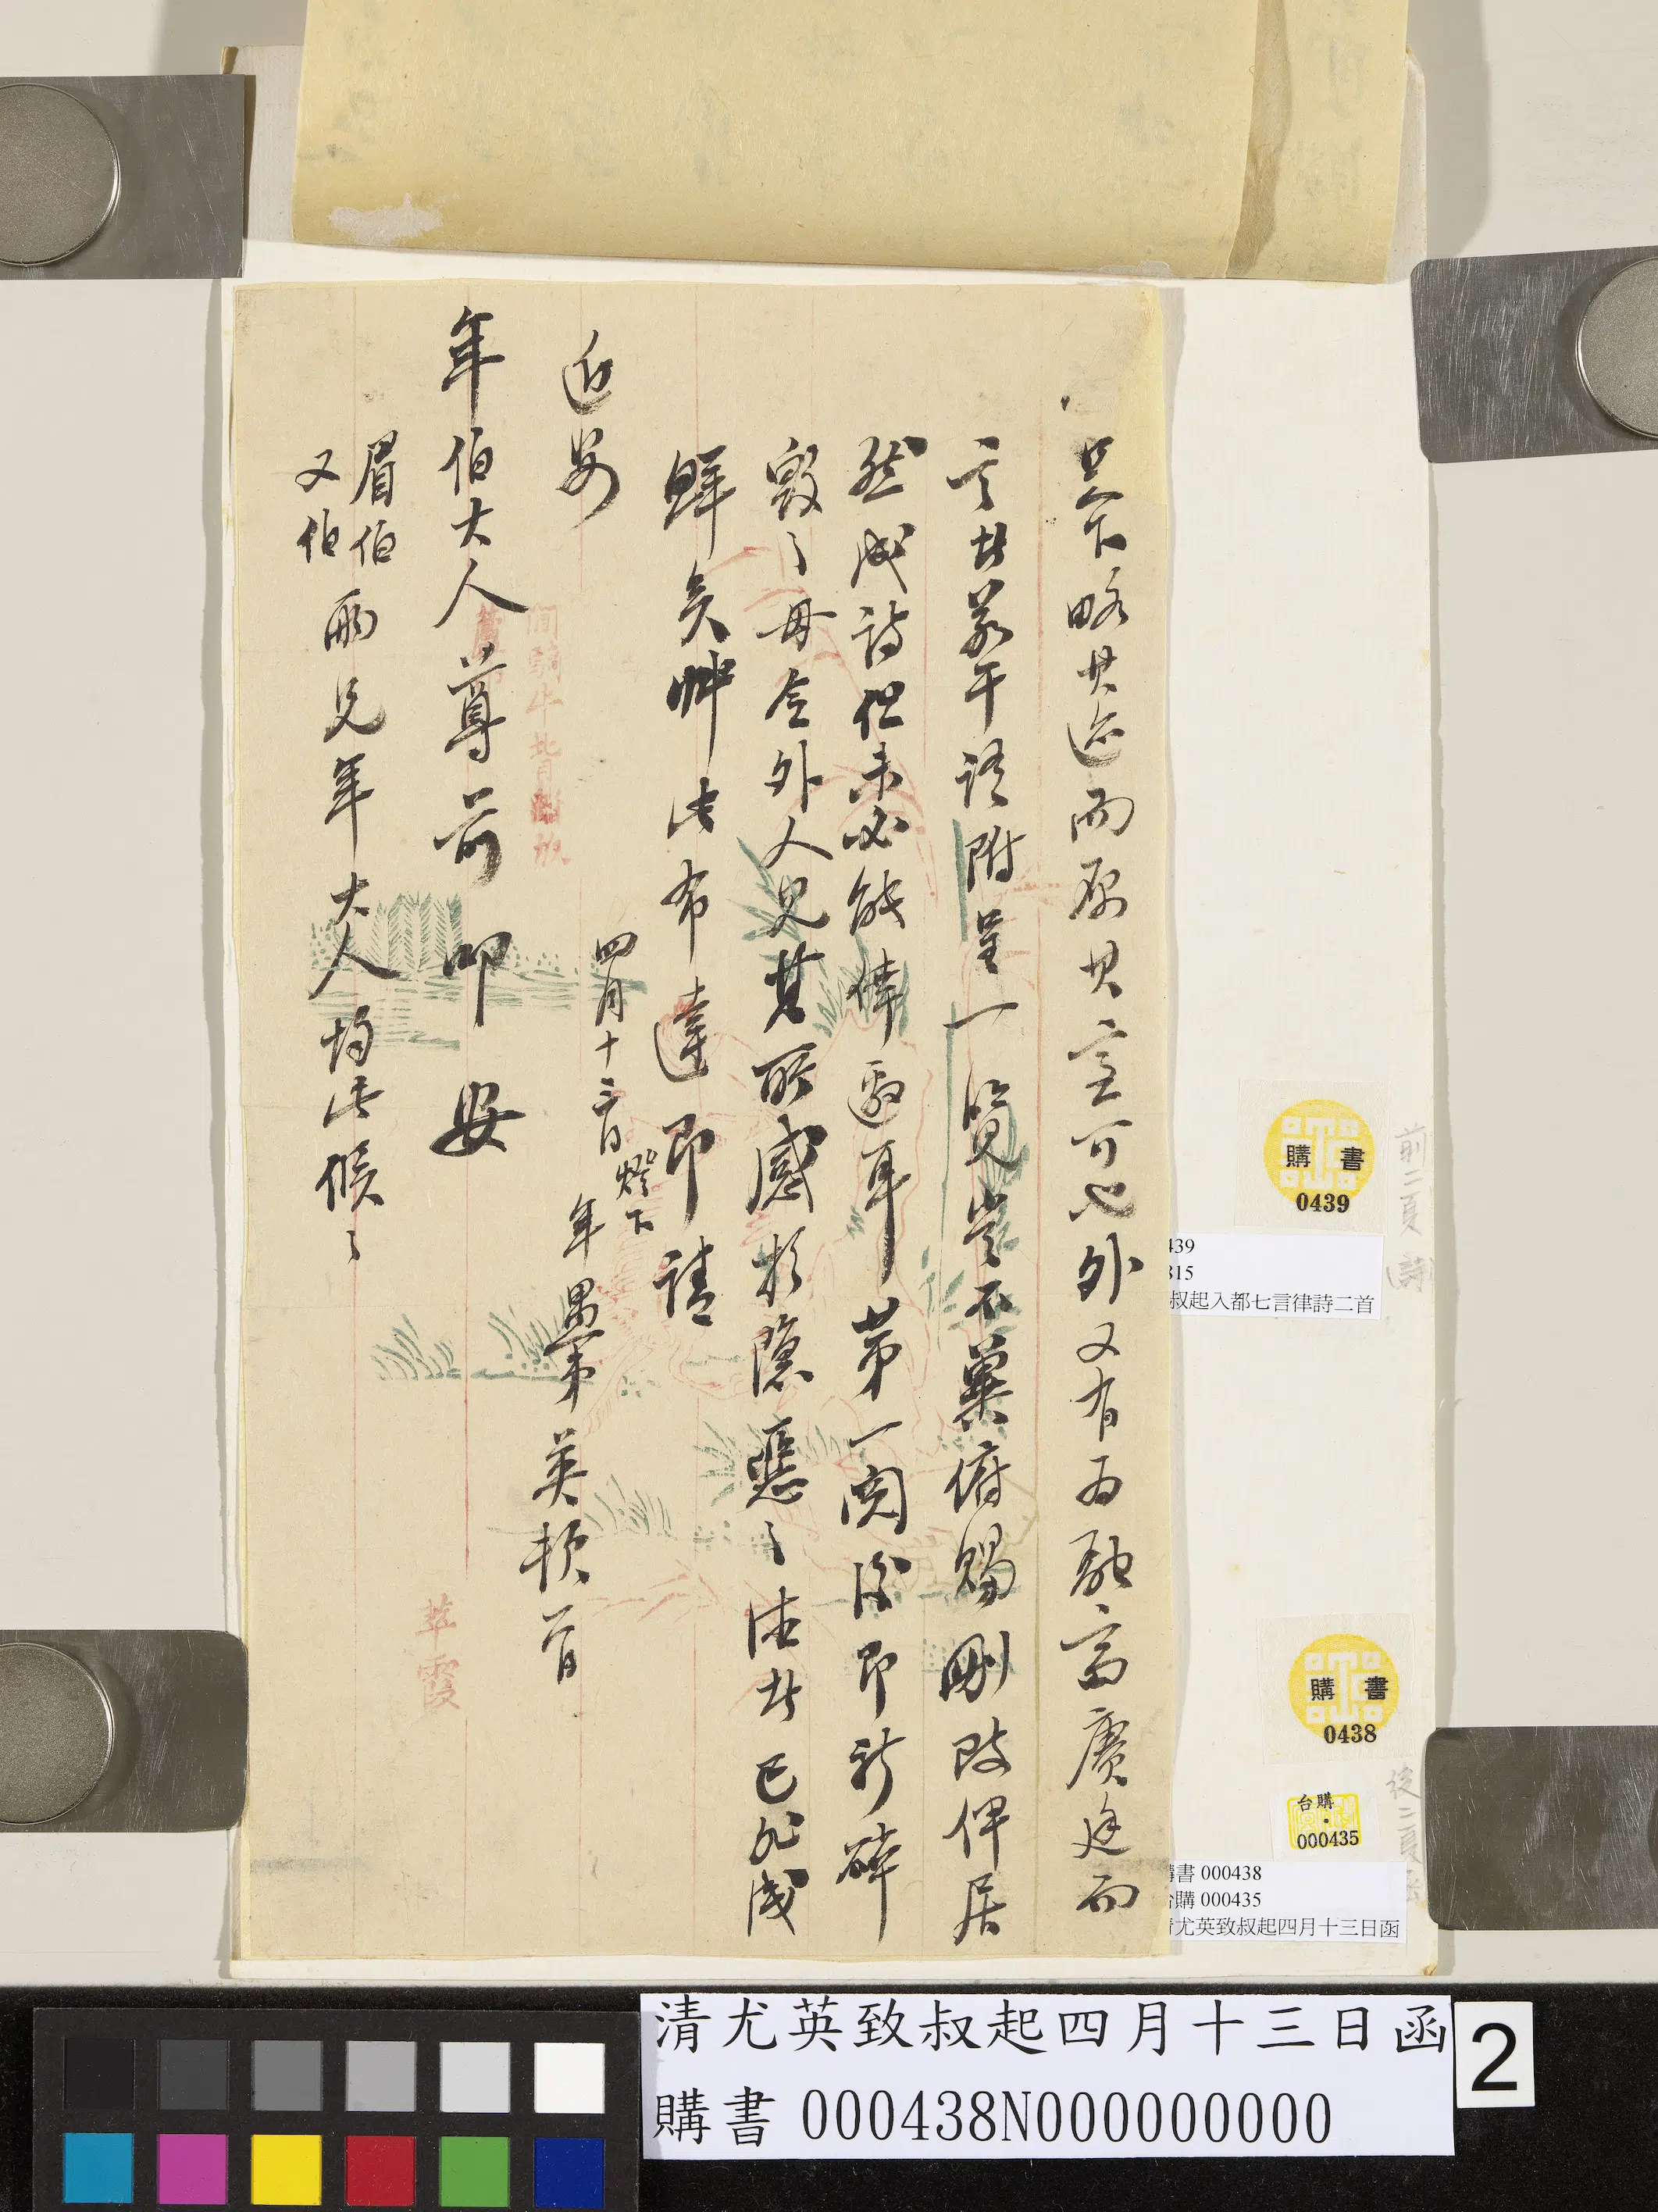 足下略其迹而原其心可也外又有為融高賡廷而
言者若干謹附呈一覽並不冀俯賜刪改俾居
然成詩但未必能倖邀耳第一閱後即祈碎
毀之毋令外人見其所感於隱慝之法者已非淺
鮮矣肅此布達即請
近安
四月十三日燈下
年愚弟英頓首
年伯大人尊前叩安
眉伯
又伯
兩兄年大人均此候之
萃霞
購書
0439
前二頁(詩)
439
315
叔起入都七言律詩二首
購書
0438
台購
000435
後二頁
購書 000438
台購 000435
清尤英致叔起四月十三日函
清尤英致叔起四月十三日函
購書 000438N000000000
2